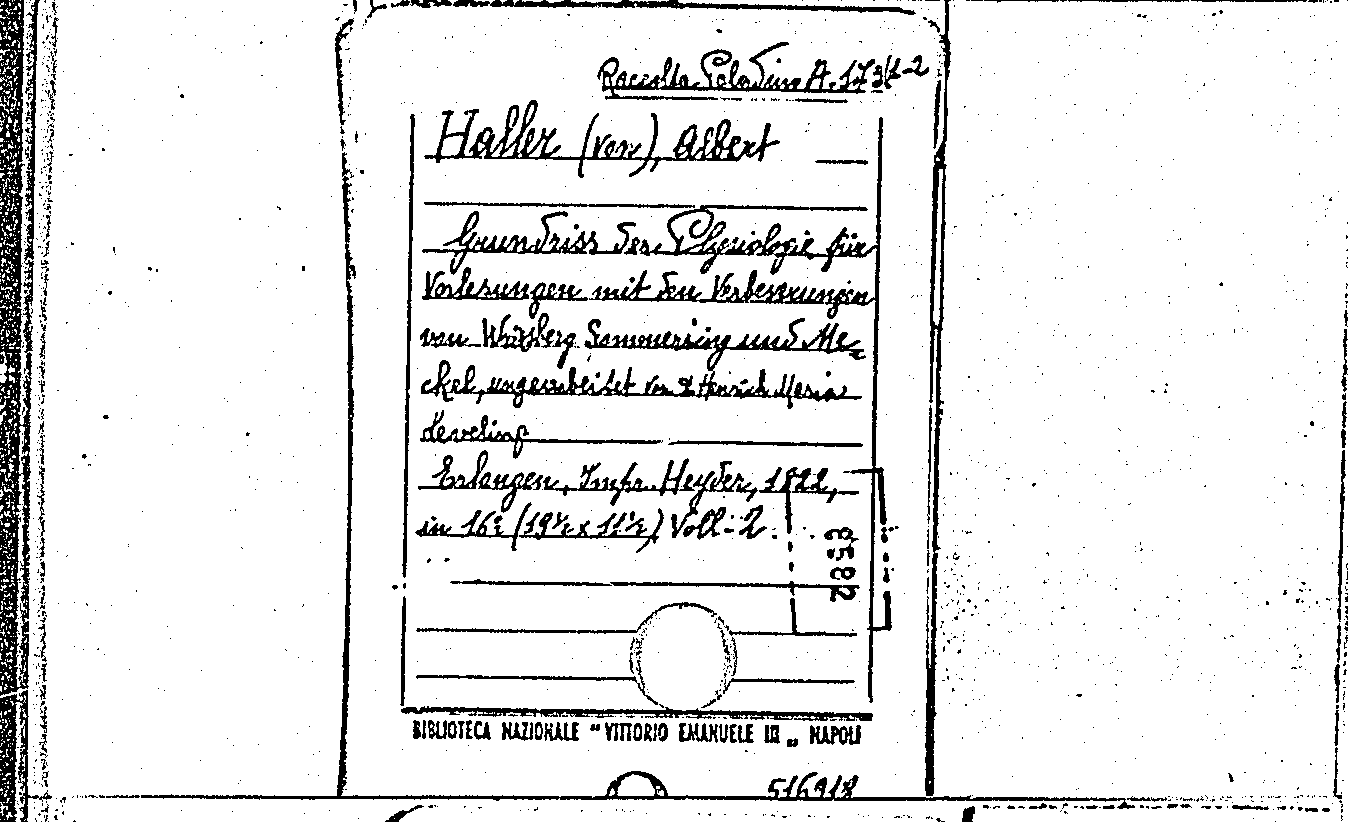 Raccolta Paladino A. 173(1-2
Haller (von), Albert
Grundriss der Physiologie für
Vorlesungen mit den Verbesserungen
von Wrisberg Sömmerring und Me-
ckel, umgearbeitet von D. Heinrich Maria
Leveling
Erlangen, Impr. Heyder, 1822,
in 16º (19½ x 11½) Voll-2.
8582
BIBLIOTECA NAZIONALE "VITTORIO EMANUELE III" NAPOLI
516918